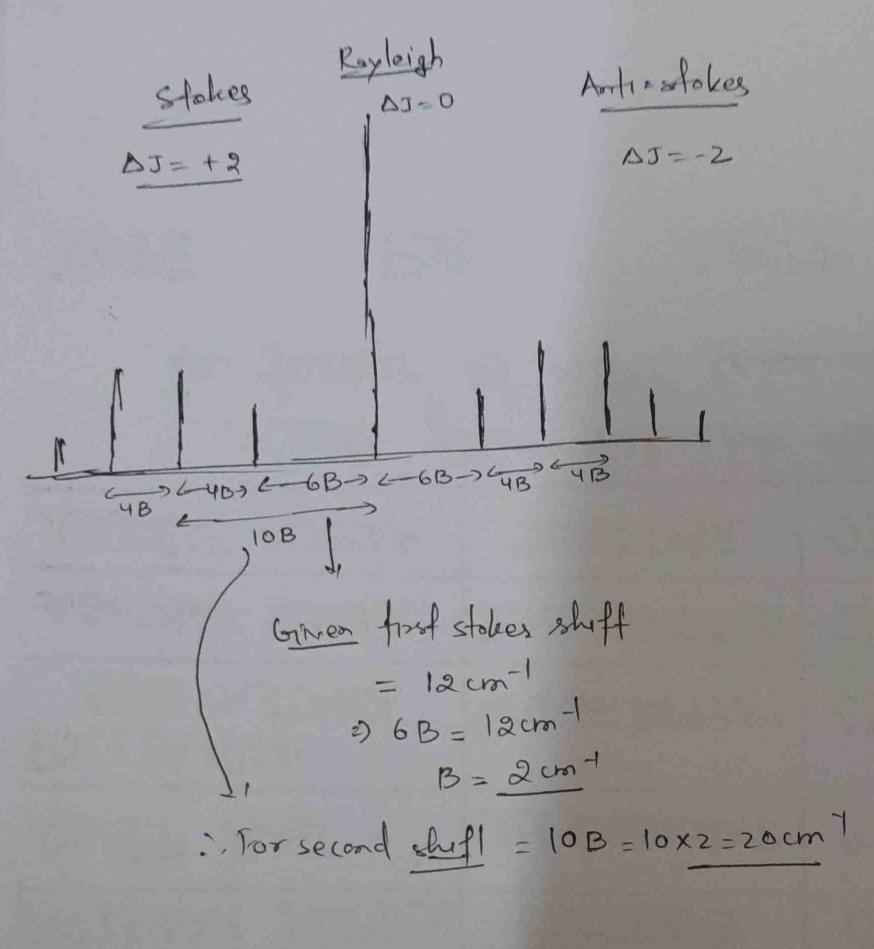 Rayleigh
Stokes
Anti-stokes
ΔJ=0
ΔJ=+2
ΔJ=-2
4B 4B 6B 6B 4B 4B
10B
Given first stokes shift
= 12 cm⁻¹
⇒ 6B = 12 cm⁻¹
B = 2 cm⁻¹
∴ For second shift = 10B = 10×2 = 20 cm⁻¹